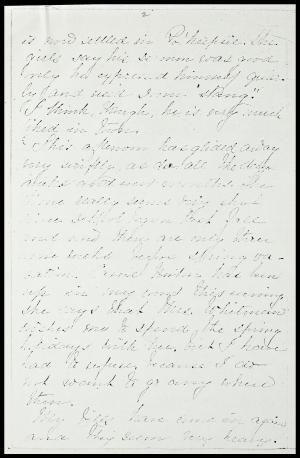 2
is now settled in Po'keepsie. The
girls say his sermon was good
only he expressed himself queer-
ly (and used some "slang".)
I think, though, he is very much
liked in town.
This afternoon has glided away
very swiftly, as do all the days
and months. The
time really seems very short
since school began last fall
and now they are only three
more weeks before spring va-
cation. has been
up in my room this evening
she says that Mrs. Whitman
wishes me to spend the spring
holidays with her, but I have
had to refuse because I do
not want to go any where
then.
My have come in again
and they seem very heavy.